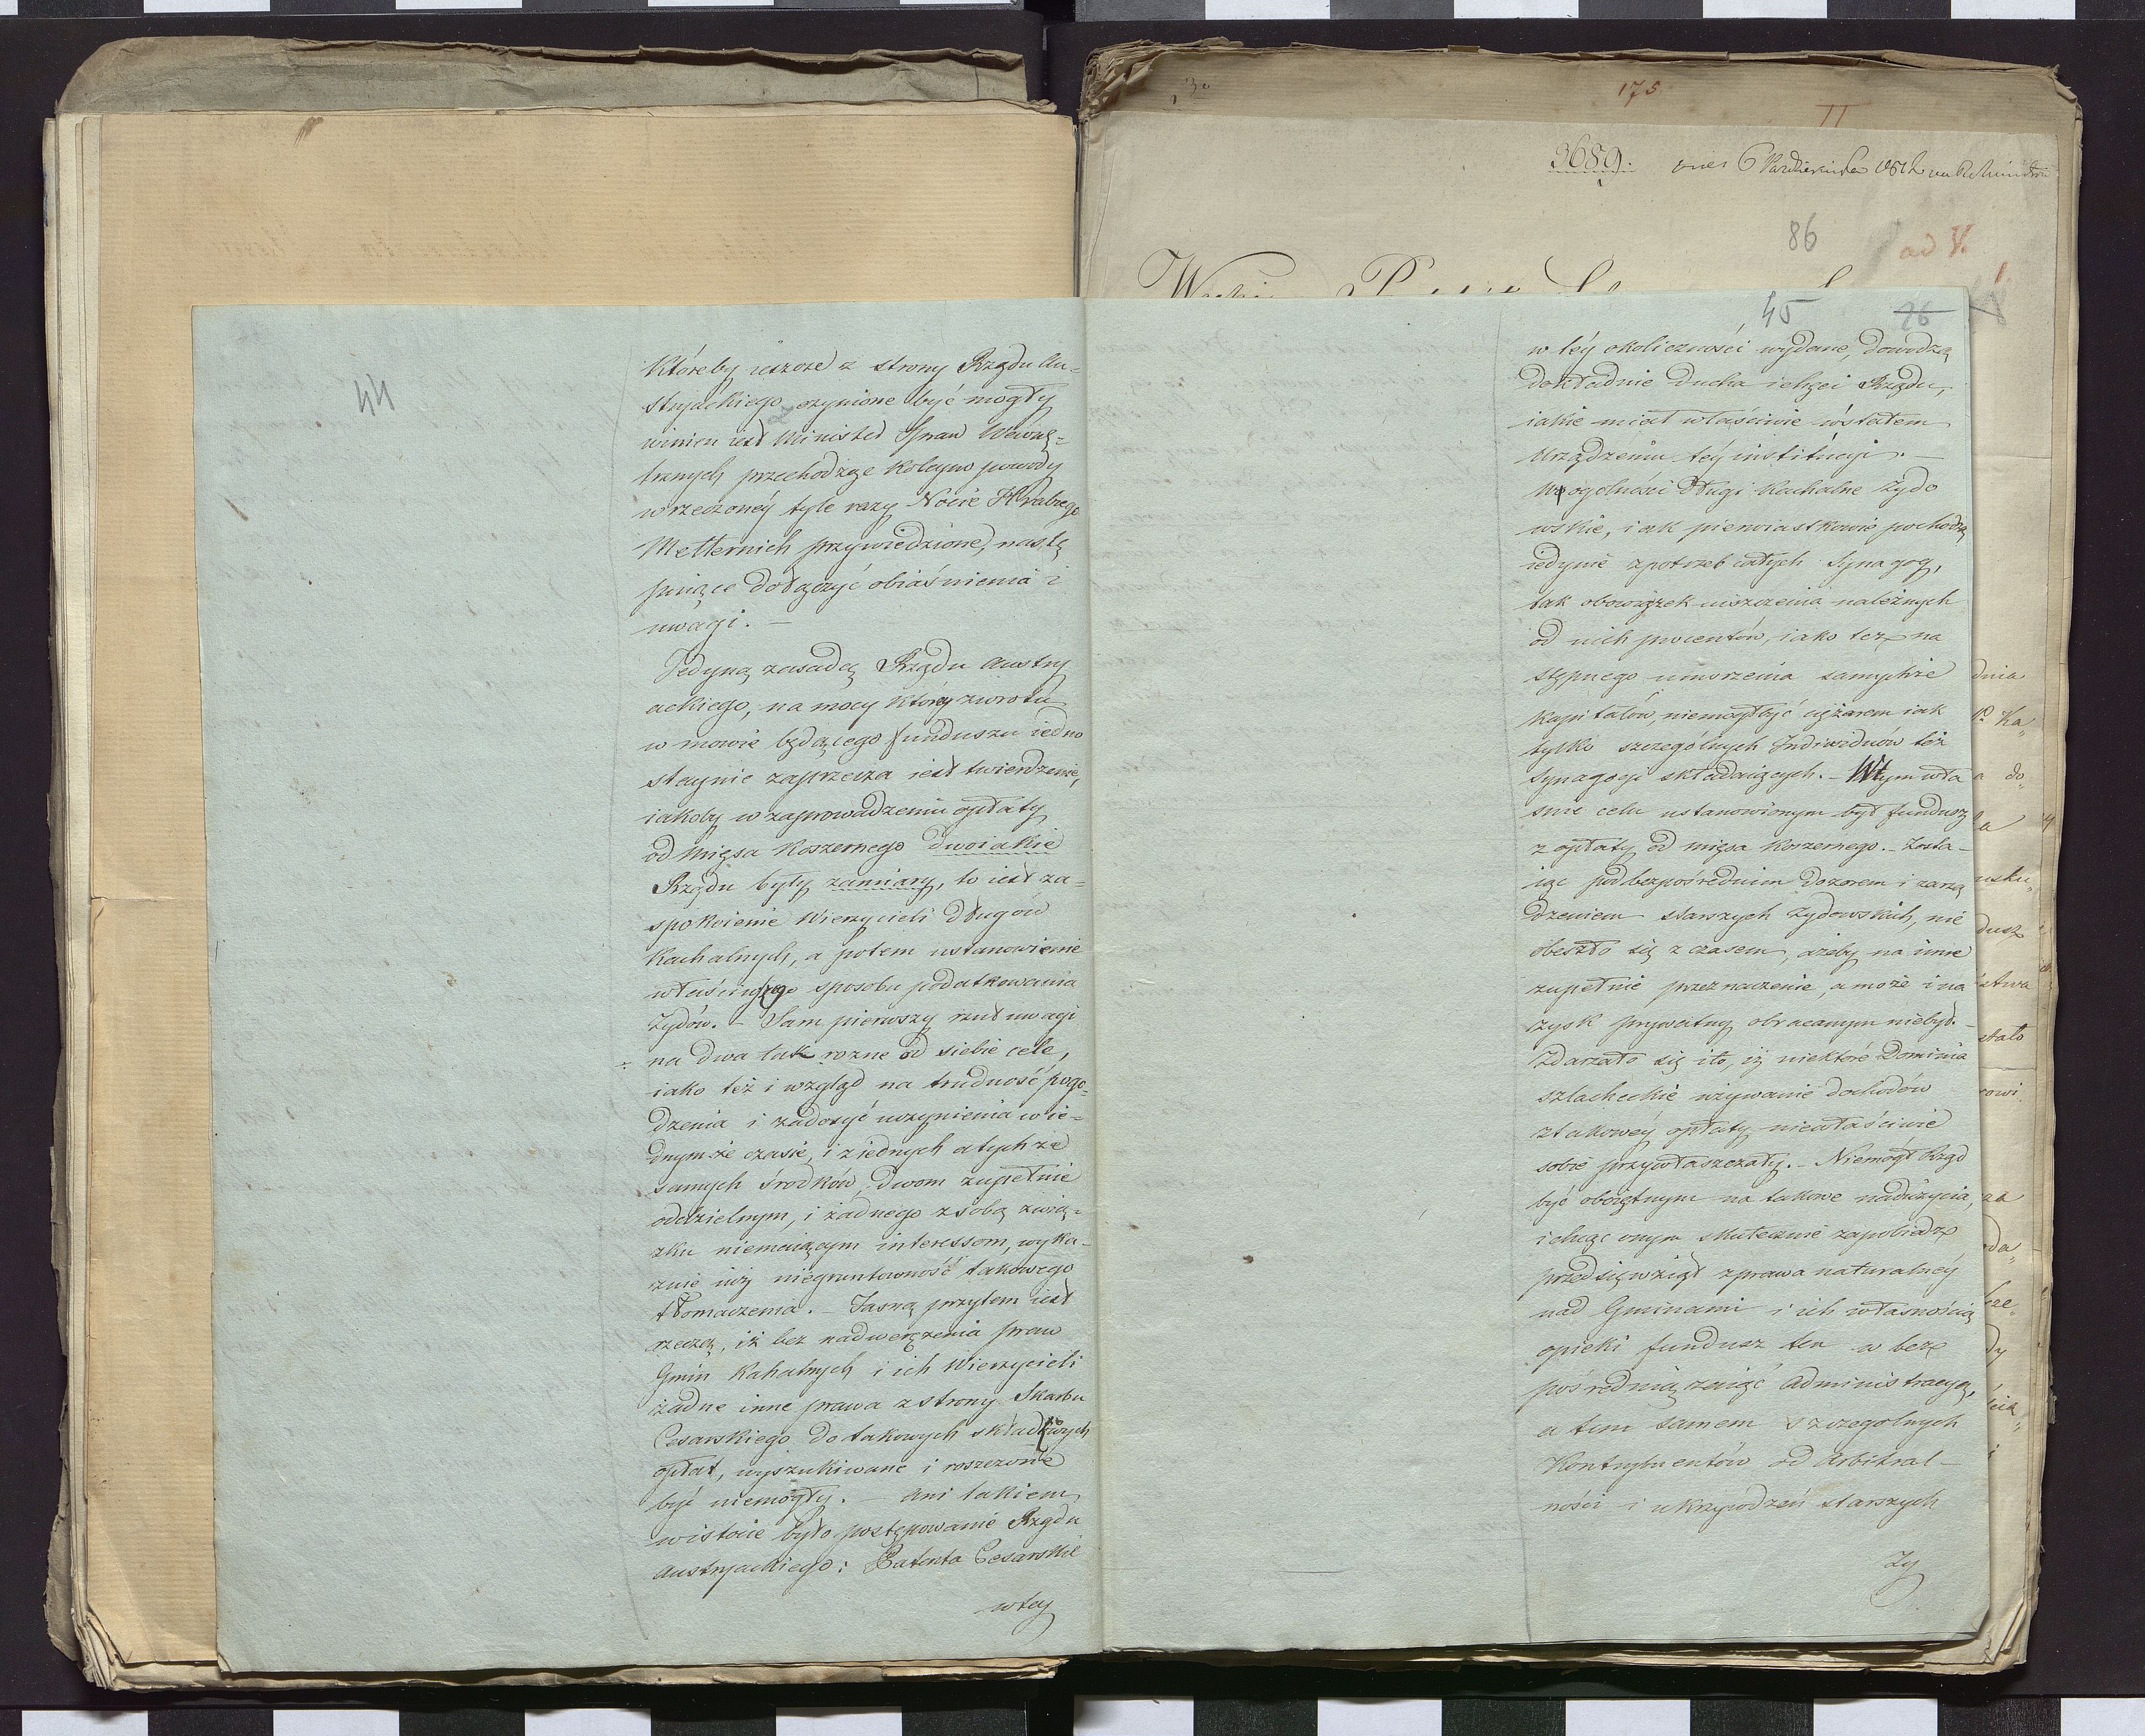 44
któreby ieszcze z strony Rządu Au-
stryackiego czynione być mogły
winien iest Minister Spraw Wewnę-
trznych, przechodząc koleyno powody
w rzeczoney tyle razy Nocie Hrabiego
Metternich przywiedzione, nastę
puiące dołączyć obiaśnienia i
uwagi. —
Jedyną zasadą Rządu Austry
ackiego, na mocy którey zwrotu
w mowie będącego funduszu iedno
staynie zaprzecza iest twierdzenie,
iakoby w zaprowadzeniu opłaty
od mięsa koszernego dwoiakie
Rządu były zamiary, to iest za-
spokoienie Wierzycieli długów
Kachalnych, a potem ustanowienie
właściwego sposobu podatkowania
Żydów. — Sam pierwszy rzut uwagi
na dwa tak rozne od siebie cele,
iako też i wzgląd na trudność pogo-
dzenia i zadosyć uczynienia w ie-
dnymże czasie, i z iednych a tychże
samych środków, dwom zupełnie
oddzielnym, i żadnego z sobą zwią-
zku niemaiącym interessom, wyka-
zuie iuż niegruntowność takowego
tłomaczenia. — Jasną przytem iest
rzeczą, iż bez nadwerężenia praw
Gmin Kahalnych i ich Wierzycieli
żadne inne prawa z strony Skarbu
Cesarskiego do takowych składkowych
opłat, wyszukiwane i roszczone
być niemogły. — Ani takiem
w istocie było postępowanie Rządu
Austryackiego: Patenta Cesarskie
w tey
175
II
3689.
86
ad V.
45
26
w téy okoliczności wydane, dowodzą
dokładnie ducha i chęci Rządu,
iakie miał właściwie wostatem
Urządzeniu téy institúcyi. —
W ogolności Długi Kachalne Żydo
wskie, iak pierwiastkowie pochodzą
iedynie z potrzeb całych Synagog,
tak obowiązek uiszczenia należnych
od nich procentów, iako też na
stępnego umorzenia samychże
kapitałów, niemógł być ciężarem iak
tylko szczególnych Indiwiduów też
Synagogi składaiących. — W tym wła
śnie celu ustanowionym był fundusz
z opłaty od mięsa koszernego. — Zosta-
iąc pod bezpośrednim dozorem i zarzą
dzeniem starszych Żydowskich, nie
obeszło się z czasem, ażeby na inne
zupełnie przeznaczenie, a może i na
zysk prywatny obracanym niebył. —
Zdarzało się i to, iż niektóre Dominia
szlacheckie używanie dochodów
z takowéy opłaty niewłaściwie
sobie przywłaszczały. — Niemógł Rząd
być oboiętnym na takowe nadużycia,
i chcąc onym skutecznie zapobiedz
przedsięwziął z prawa naturalney
nad Gminami i ich własnością
opieki fundusz ten w bez
pośrednią zaiąć Administracyą,
a tem samem szczegolnych
Kontrybuentów od Arbitral-
ności i ukrzywdzeń starszych
Ży
dnia
a do
usku„
dusz
stwa
stało
rowi